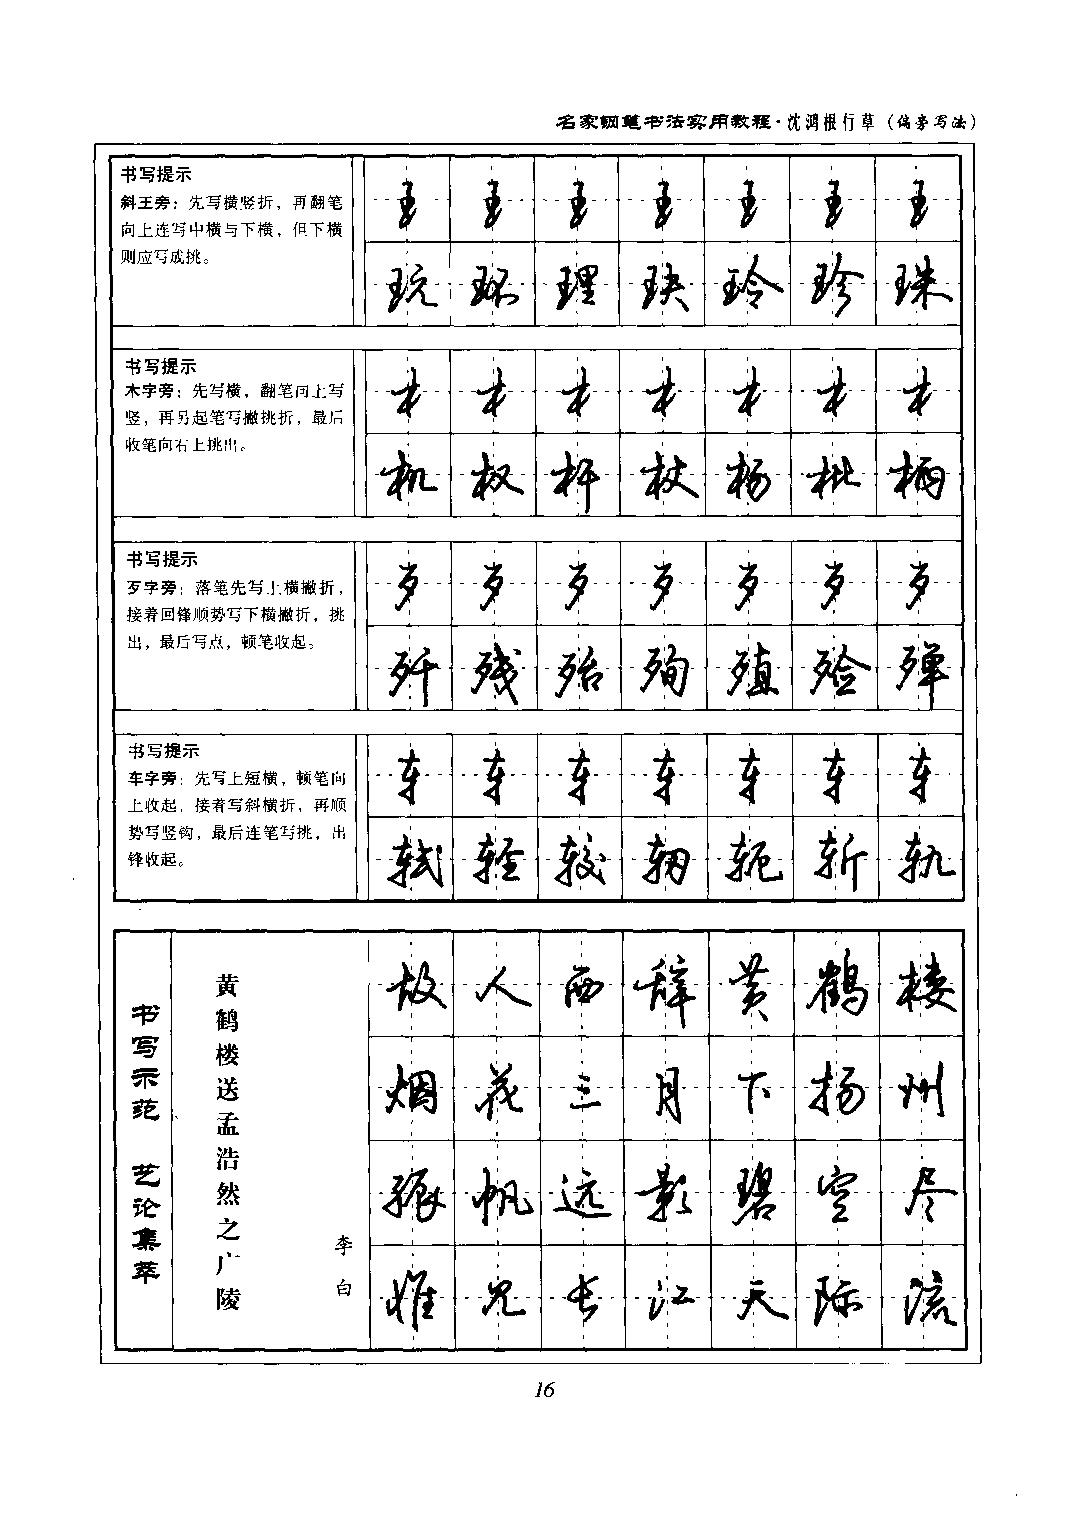 名家钢笔书法实用教程·沈鸿根行草(偏旁写法)
书写提示
斜王旁：先写横竖折，再翻笔
向上连写中横与下横，但下横
则应写成挑。
王 王 王 王 王 王 王
玩 环 理 玦 玲 珍 珠
书写提示
木字旁：先写横，翻笔向上写
竖，再另起笔写撇挑折，最后
收笔向右上挑出。
木 木 木 木 木 木 木
机 权 杆 杖 杨 枇 柄
书写提示
歹字旁：落笔先写上横撇折，
接着回锋顺势写下横撇折，挑
出，最后写点，顿笔收起。
歹 歹 歹 歹 歹 歹 歹
歼 残 殆 殉 殖 殓 殚
书写提示
车字旁：先写上短横，顿笔向
上收起，接着写斜横折，再顺
势写竖钩，最后连笔写挑，出
锋收起。
车 车 车 车 车 车 车
轼 轻 较 轫 轭 斩 轨
书写示范 艺论集萃
黄鹤楼送孟浩然之广陵
李白
故人西辞黄鹤楼
烟花三月下扬州
孤帆远影碧空尽
惟见长江天际流
16